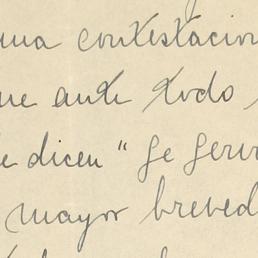 una contestacion
ue ante todo
e dicen "
mayor breved